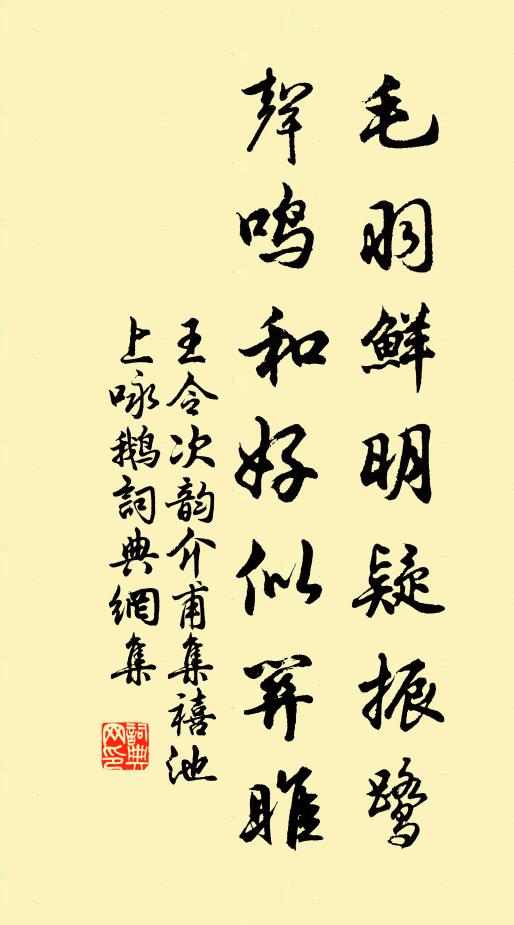 毛羽鮮明疑振鷺
聲鳴和好似關雎
王令次韵介甫集禧池
上咏鵝詞典網集
詞典
网印